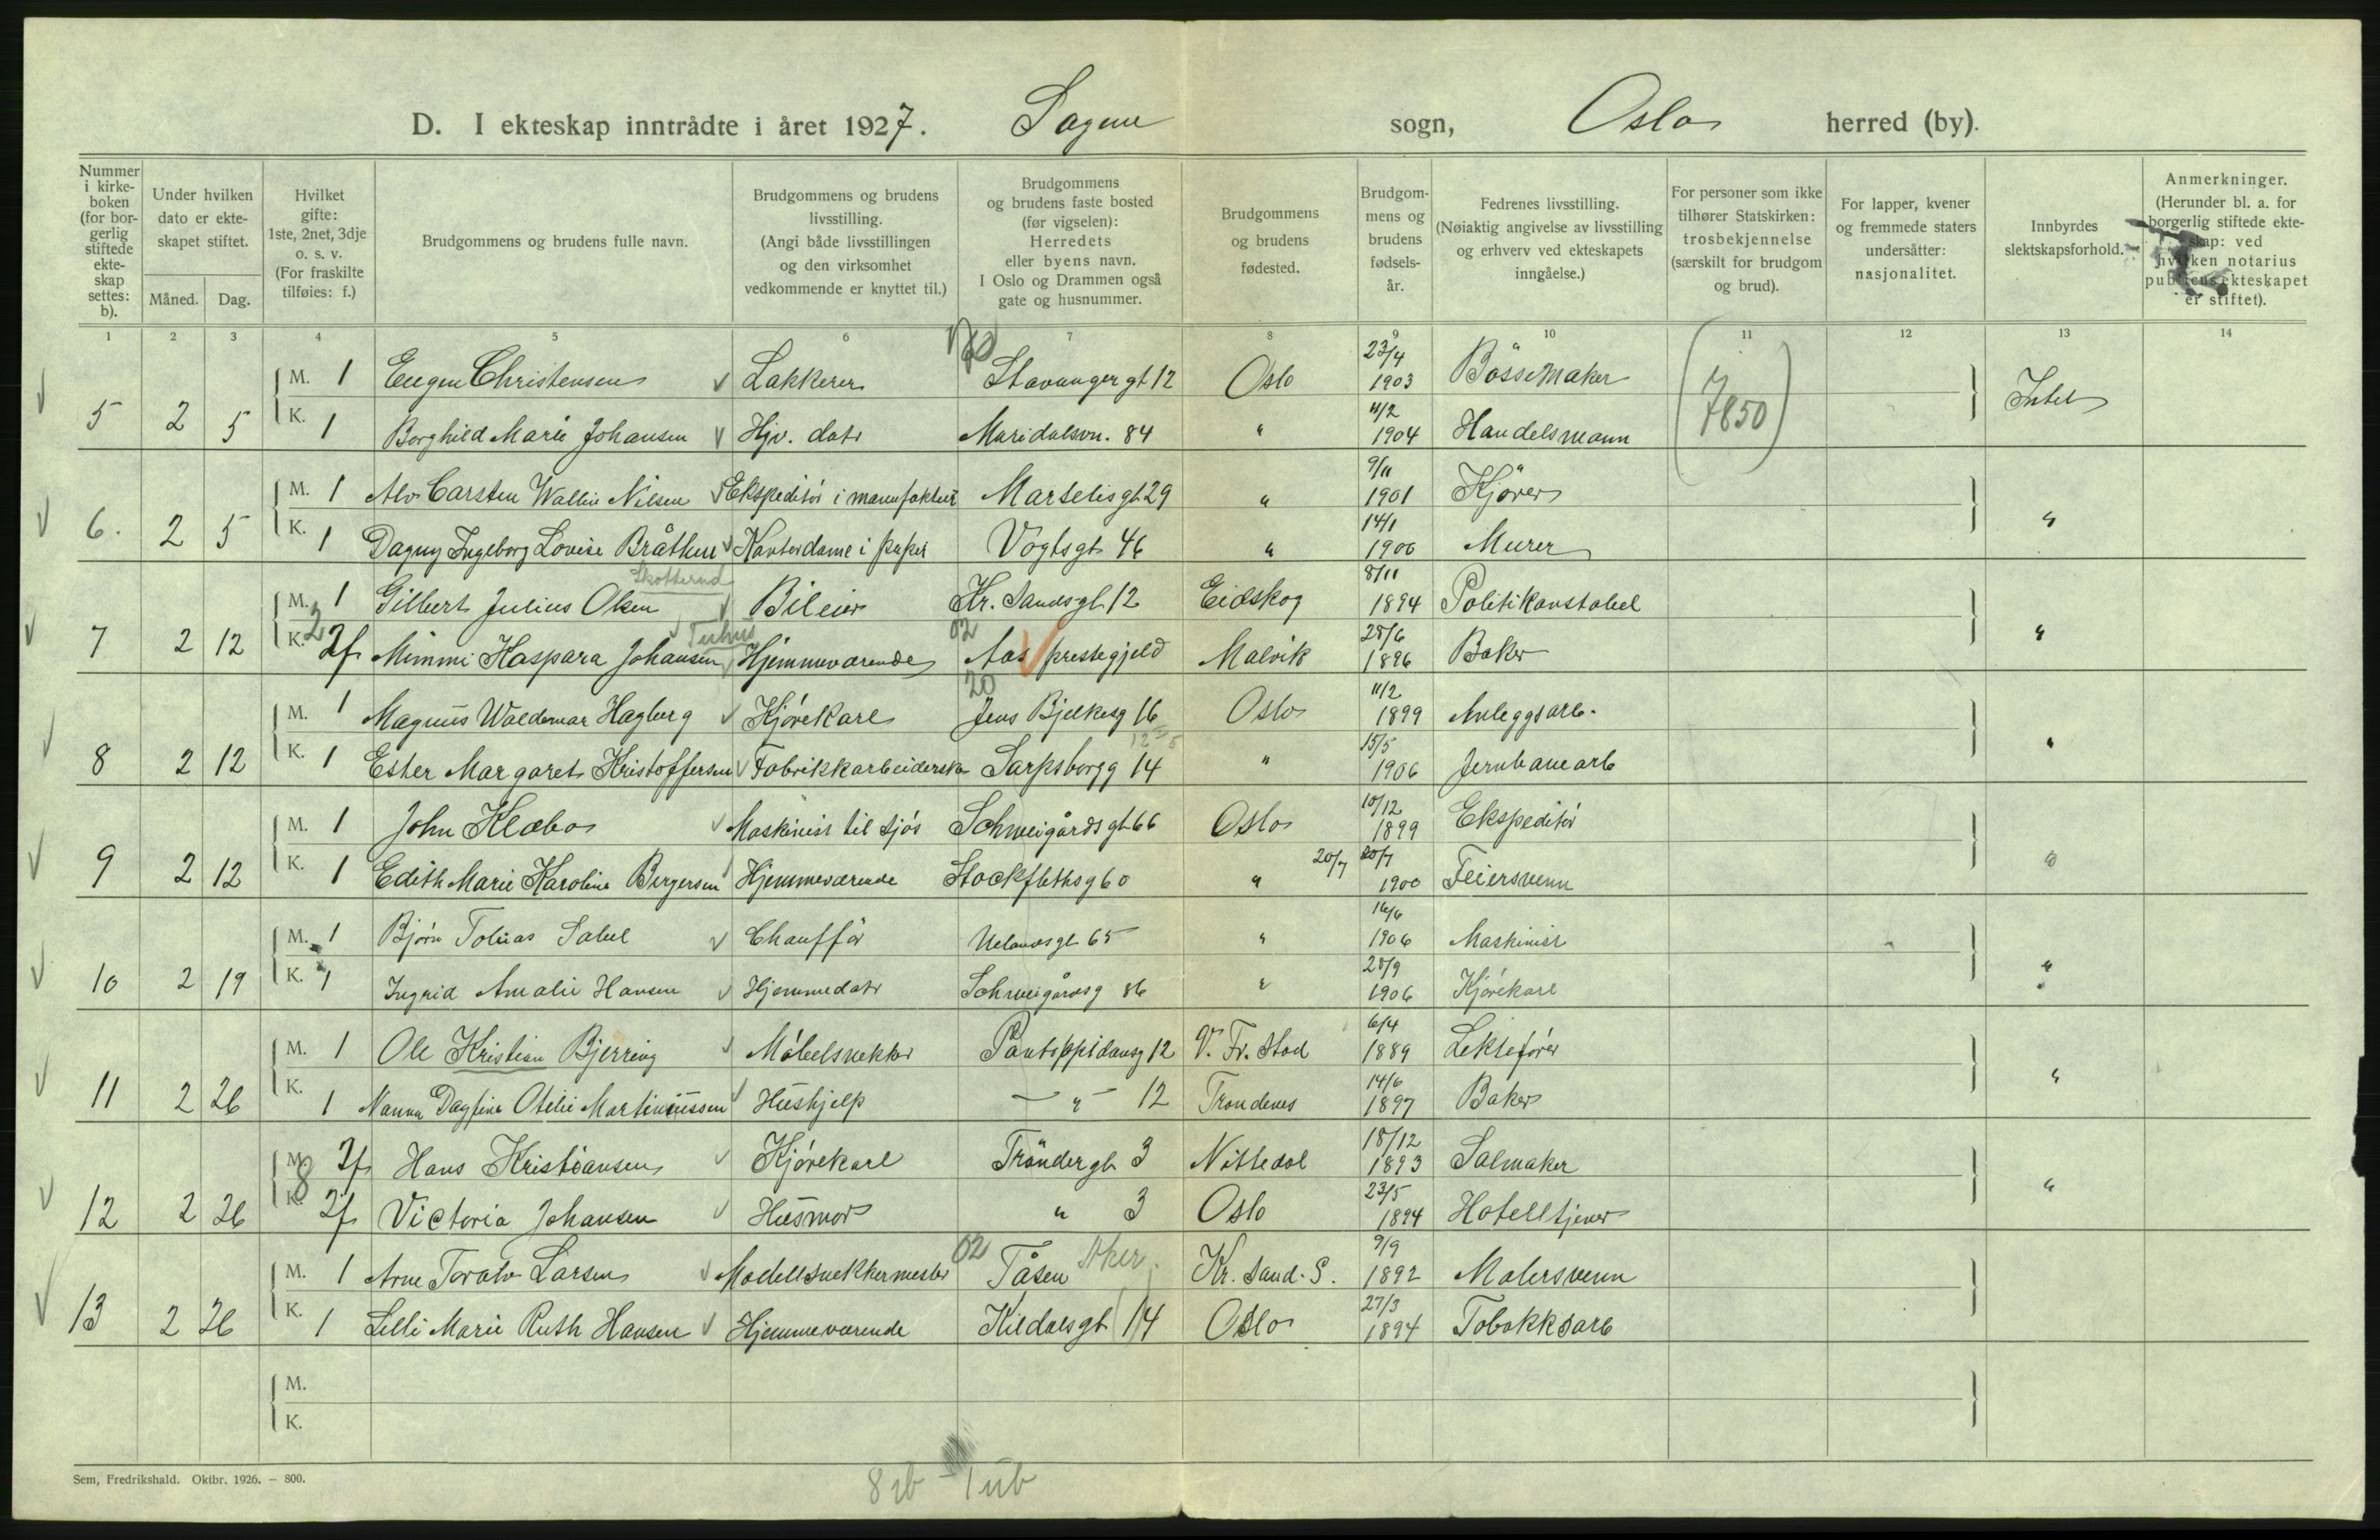 D. I ekteskap inntrådte i året 1927. Sagene sogn, Oslo herred (by).
Nummer i kirkeboken (for borgerlig stiftede ekteskap settes: b).
Under hvilken dato er ekteskapet stiftet.
Måned. Dag.
Hvilket gifte: 1ste, 2net, 3dje o. s. v. (For fraskilte tilføies: f.)
Brudgommens og brudens fulle navn.
Brudgommens og brudens livsstilling. (Angi både livsstillingen og den virksomhet vedkommende er knyttet til.)
Brudgommens og brudens faste bosted (før vigselen): Herredets eller byens navn. I Oslo og Drammen også gate og husnummer.
Brudgommens og brudens fødested.
Brudgommens og brudens fødselsår.
Fedrenes livsstilling. (Nøiaktig angivelse av livsstilling og erhverv ved ekteskapets inngåelse.)
For personer som ikke tilhører Statskirken: trosbekjennelse (særskilt for brudgom og brud).
For lapper, kvener og fremmede staters undersåtter: nasjonalitet.
Innbyrdes slektskapsforhold.
Anmerkninger. (Herunder bl. a. for borgerlig stiftede ekteskap: ved hvilken notarius publicus ekteskapet er stiftet).
1 2 3 4 5 6 7 8 9 10 11 12 13 14
M. 1 Eugen Christensen Lakkerer Stavangergt 12 Oslo 23/4 1903 Bössemaker
5 2 5 K. 1 Borghild Marie Johansen Hjv. datr Maridalsvn. 84 " 11/2 1904 Handelsmann 7850 Intet
M. 1 Alv Carsten Wallin Nilsen Ekspeditör i manufaktur Marselisgt 29 " 9/11 1901 Kjörer
6. 2 5 K. 1 Dagny Ingeborg Lovise Bråthen Kontordame i papir Vogtsgt 46 " 14/1 1906 Murer "
Skotterud
M. 1 Gilbert Julius Olsen Bileier Kr. Sandsgt 12 Eidskog 8/11 1894 Politikonstabel
7 2 12 K. 2f Mimmi Kaspara Johansen Hjemmeværende 02 Aas prestegjeld Malvik 28/6 1896 Baker "
M. 1 Magnus Waldemar Hagberg Kjörekarl 20 Jens Bjelkesg 16 Oslo 11/2 1899 Anleggsarb.
8 2 12 K. 1 Ester Margaret Kristoffersen Fabrikkarbeiderske Sarpsborgg 14 " 15/5 1906 Jernbanearb "
M. 1 John Klæbo Maskinist til sjös Schweigårdsgt 66 Oslo 10/12 1899 Ekspeditör
9 2 12 K. 1 Edith Marie Karoline Bergersen Hjemmeværende Stockflethsg 60 " 20/7 20/7 1900 Feiersvenn "
M. 1 Björn Tobias Sabel Chaufför Uelandsgt 65 " 16/6 1906 Maskinist
10 2 19 K. 1 Ingrid Amalie Hansen Hjemmedatr Schweigårdsg 86 " 28/9 1906 Kjörekarl "
M. 1 Ole Kristian Bjerring Möbelsnekker Pontoppidansg 12 V. Fr. stad 6/4 1889 Lektefører
11 2 26 K. 1 Nanna Dagfine Otelie Martiniussen Hushjelp — " — 12 Trondenes 14/6 1897 Baker "
M. 2f Hans Kristiansen Kjörekarl Tröndergt 3 Nittedal 18/12 1893 Salmaker
12 2 26 K. 2f Victoria Johansen Husmor " 3 Oslo 23/5 1894 Hotelltjener "
M. 1 Arne Toralv Larsen Modellsnekkermester 02 Tåsen Aker. Kr. sand. S. 9/9 1892 Malersvenn
13 2 26 K. 1 Lelli Marie Ruth Hansen Hjemmeværende Kildalsgt 14 Oslo 27/3 1894 Tobakksarb
M.
K.
Sem, Fredrikshald. Oktbr. 1926. — 800.